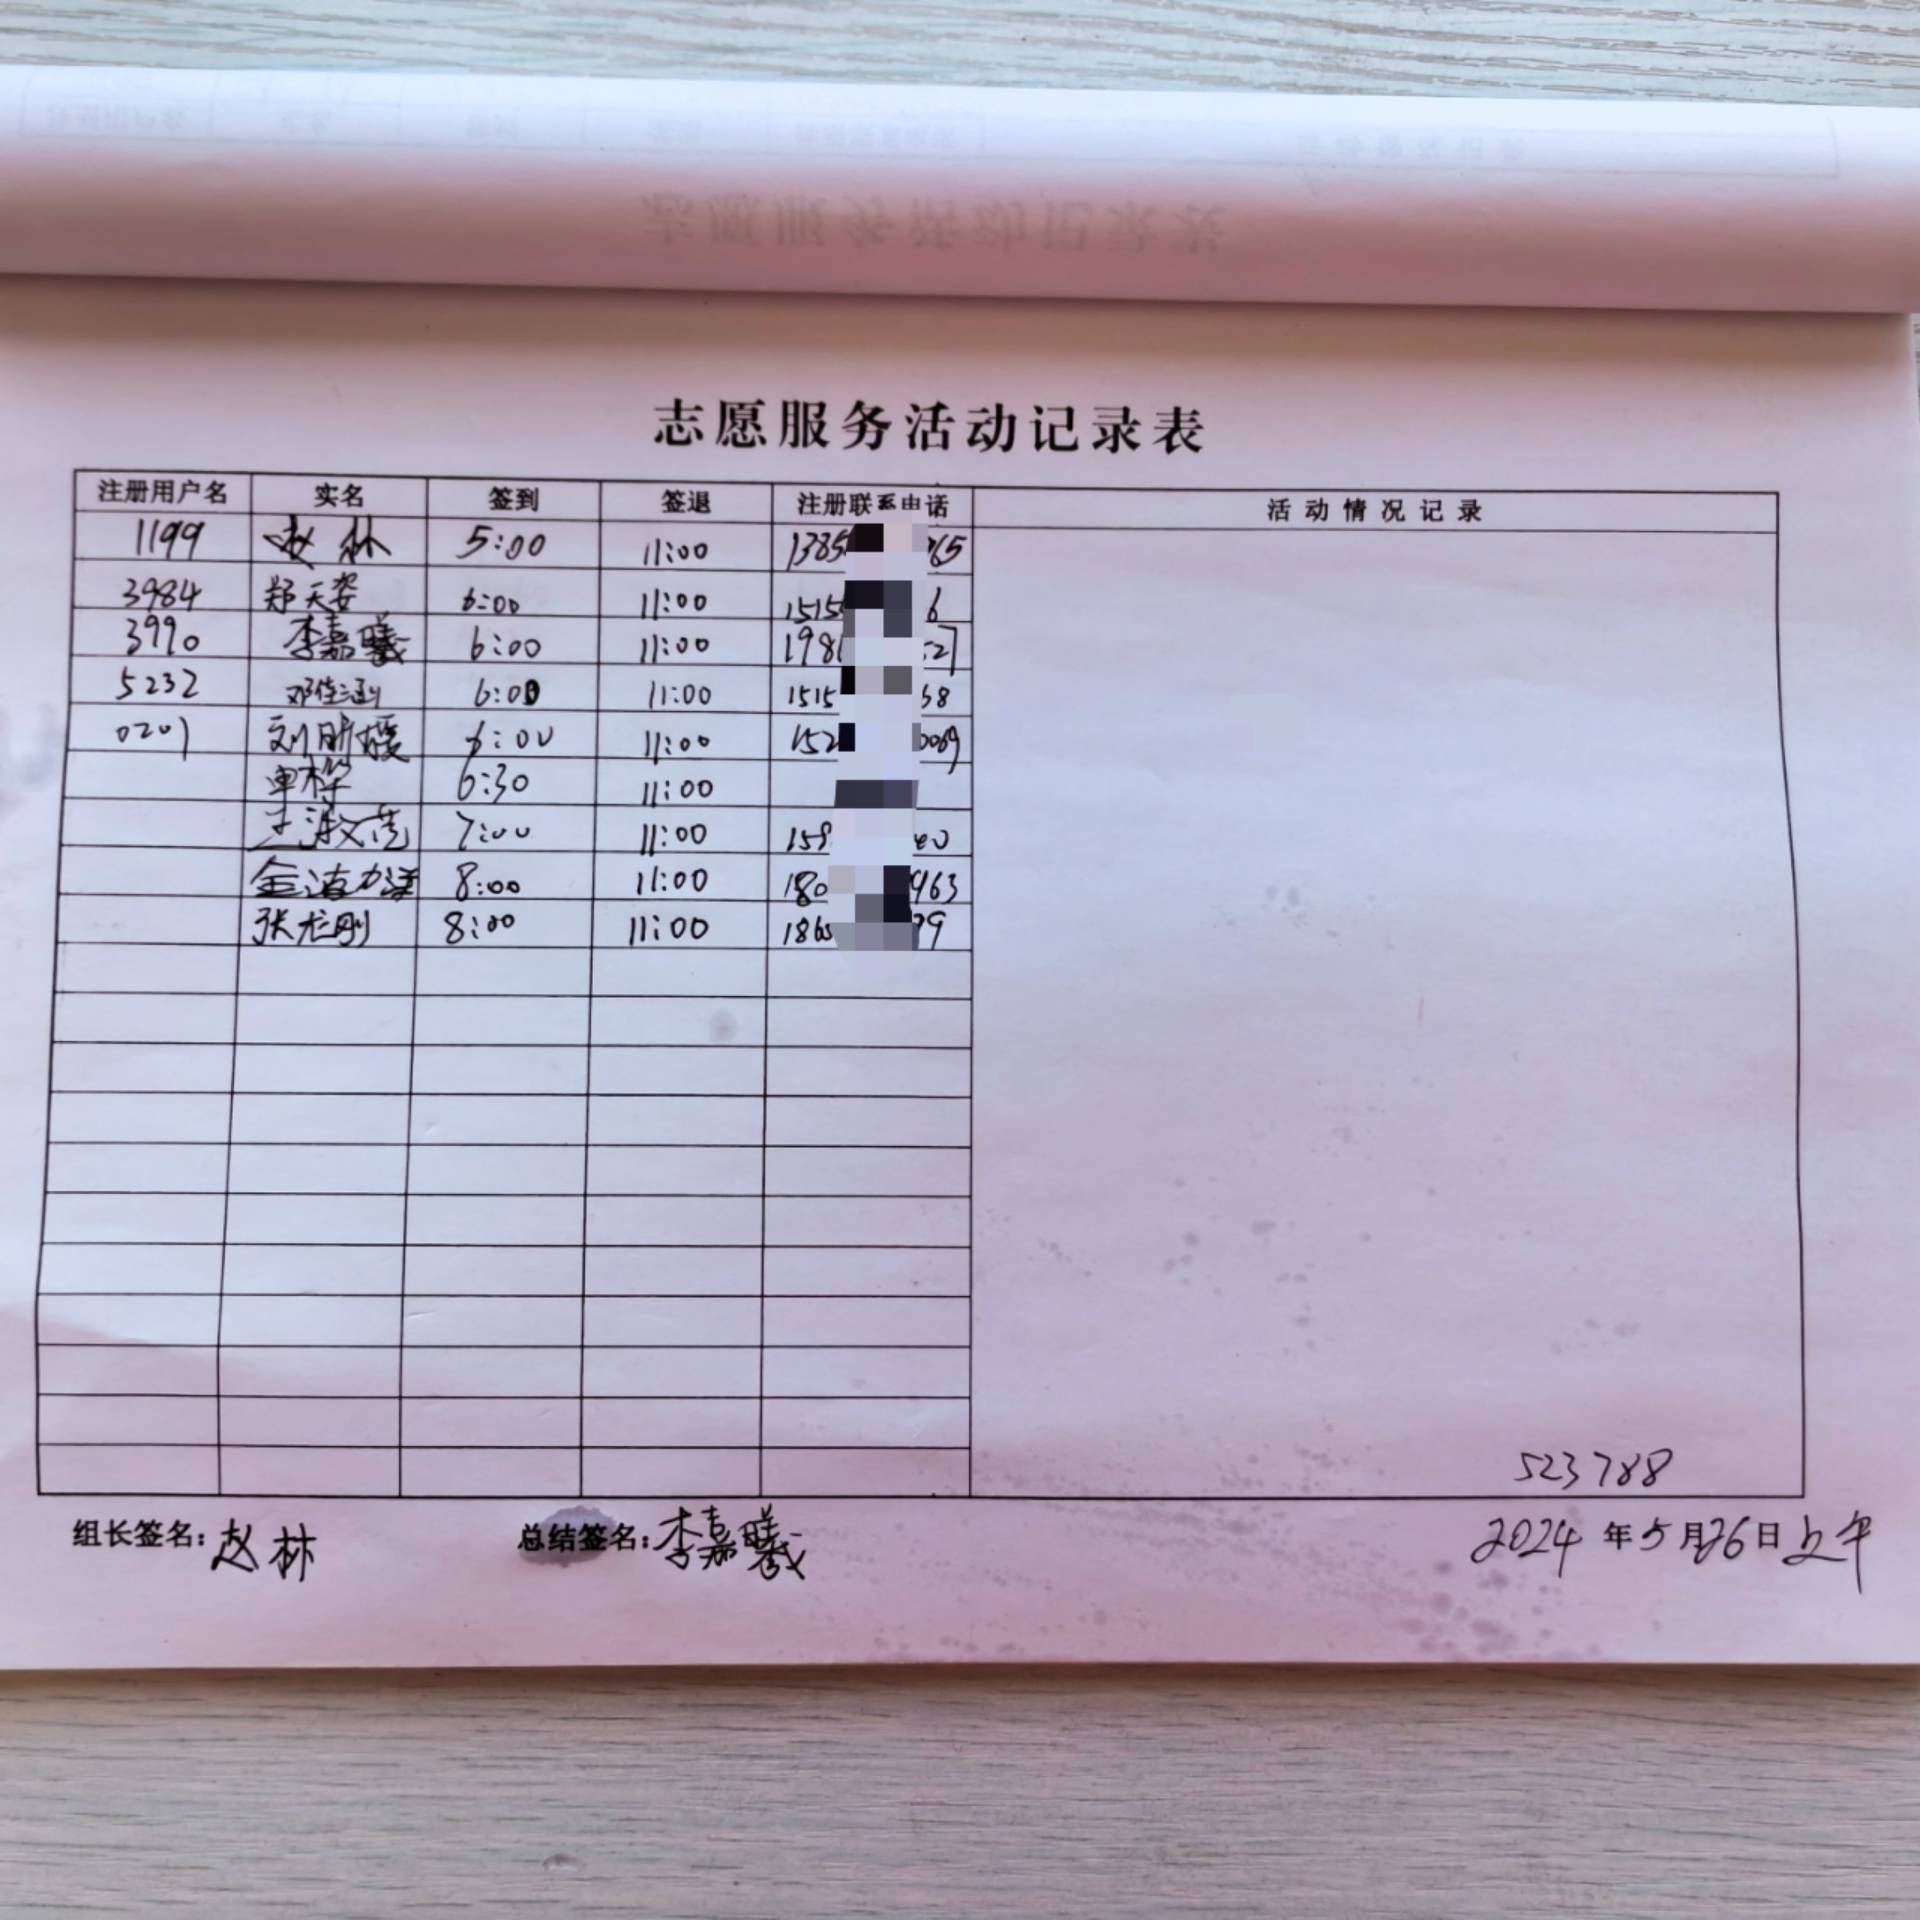 志愿服务活动记录表
注册用户名 实名 签到 签退 注册联系电话 活动情况记录
1199 赵林 5:00 11:00 1385 65
3984 郑天姿 6:00 11:00 1515 6
3990 李嘉曦 6:00 11:00 198 27
5232 邓佳涵 6:00 11:00 1515 68
0201 刘昕媛 6:00 11:00 152 0069
单桦 6:30 11:00
王淑芫 7:00 11:00 159 40
金洁 8:00 11:00 180 963
张龙刚 8:00 11:00 186 79
523788
组长签名:赵林 总结签名:李嘉曦 2024年5月26日上午